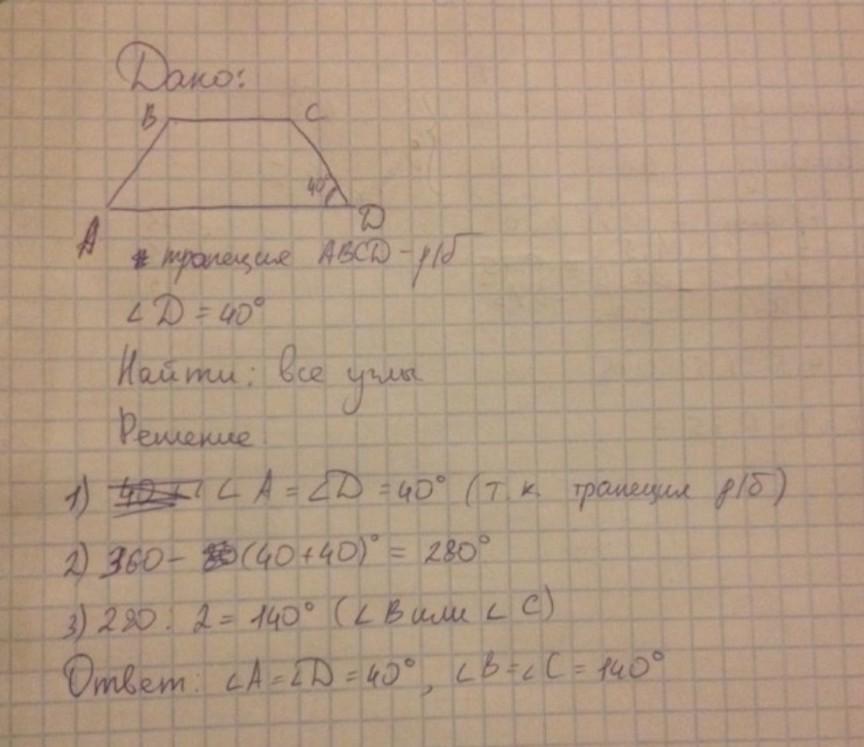 Дано:
B C
40°
A D
трапеция ABCD - р/б
∠D = 40°
Найти: все углы
Решение
1) ∠A = ∠D = 40° (т.к. трапеция р/б)
2) 360 - (40+40)° = 280°
3) 280 : 2 = 140° (∠B или ∠C)
Ответ: ∠A = ∠D = 40°, ∠B = ∠C = 140°